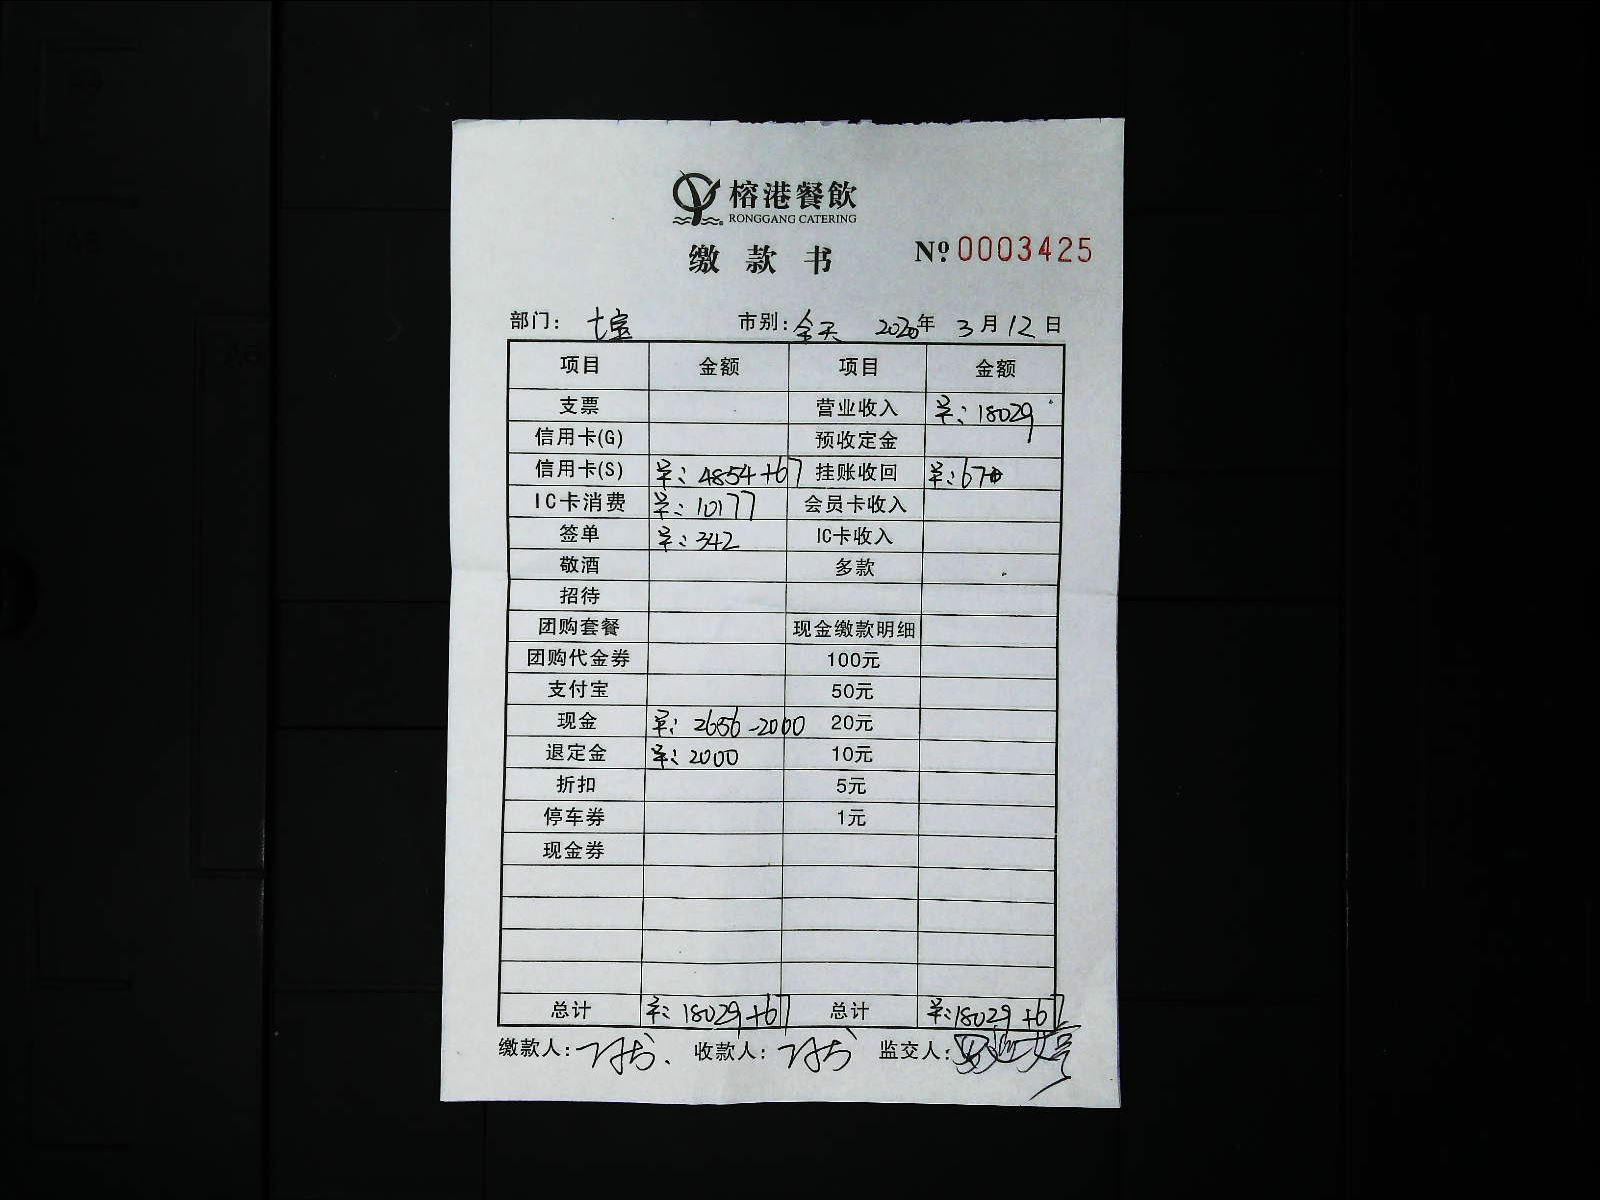 榕港餐飲
RONGGANG CATERING
缴款书 №0003425
部门: 七宝 市别: 全天 2020年 3月12日
项目 金额 项目 金额
支票 营业收入 ¥: 18029
信用卡(G) 预收定金
信用卡(S) ¥: 4854+67 挂账收回 ¥: 67
IC卡消费 ¥: 10177 会员卡收入
签单 ¥: 342 IC卡收入
敬酒 多款
招待
团购套餐 现金缴款明细
团购代金券 100元
支付宝 50元
现金 ¥: 2656-2000 20元
退定金 ¥: 2000 10元
折扣 5元
停车券 1元
现金券
总计 ¥: 18029+67 总计 ¥: 18029+67
缴款人: 收款人: 监交人: